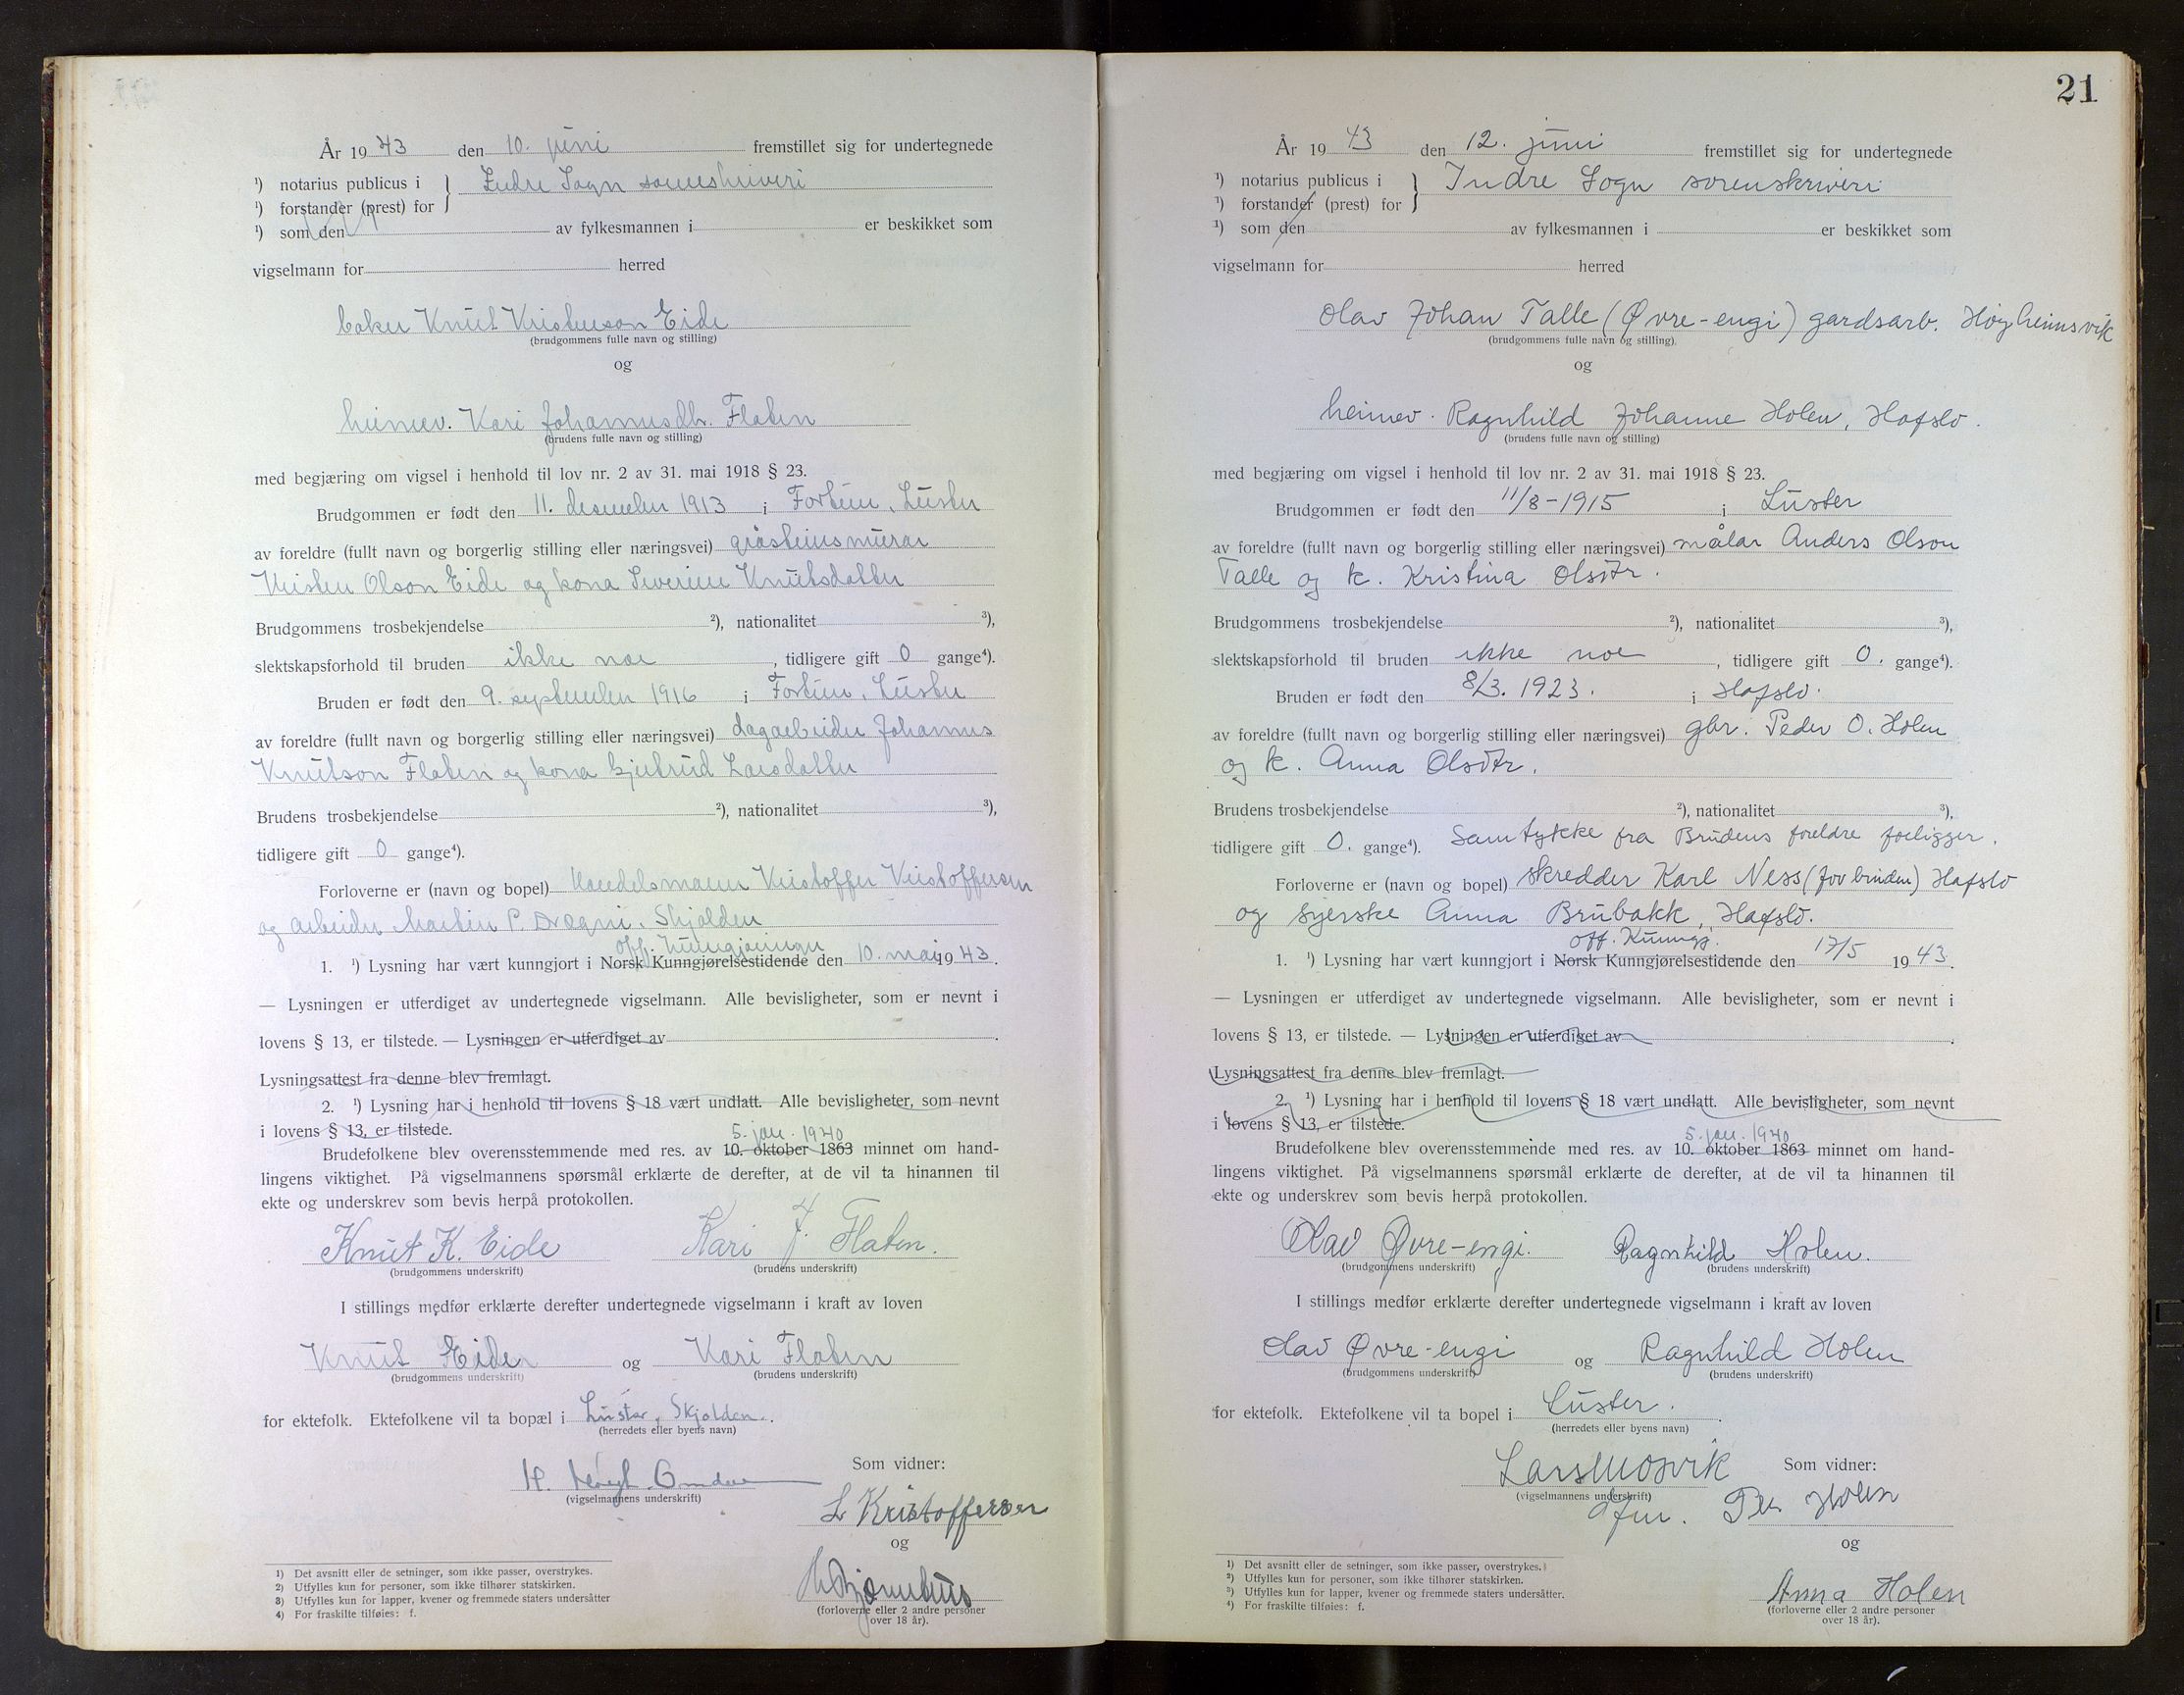 År 1943 den 10. juni fremstillet sig for undertegnede
¹) notarius publicus i } Indre Sogn sorenskriveri
¹) forstander (prest) for
¹) som den av fylkesmannen i er beskikket som
vigselmann for herred
baker Knut Kristenson Eide
(brudgommens fulle navn og stilling)
og
heimev. Kari Johannesdtr. Flaten
(brudens fulle navn og stilling)
med begjæring om vigsel i henhold til lov nr. 2 av 31. mai 1918 § 23.
Brudgommen er født den 11. desember 1913 i Fortun, Luster
av foreldre (fullt navn og borgerlig stilling eller næringsvei) gråsteinsmurar
Kristen Olson Eide og kona Severine Knutsdatter
Brudgommens trosbekjendelse ²), nationalitet ³),
slektskapsforhold til bruden ikke noe, tidligere gift 0 gange⁴).
Bruden er født den 9. september 1916 i Fortun, Luster
av foreldre (fullt navn og borgerlig stilling eller næringsvei) dagarbeider Johannes
Knutson Flaten og kona Gjertrud Larsdatter
Brudens trosbekjendelse ²), nationalitet ³),
tidligere gift 0 gange⁴).
Forloverne er (navn og bopel) Handelsmann Kristoffer Kristoffersen
og arbeider Martin P. Drægni, Skjolden
off. kunngjøringer
1. ¹) Lysning har vært kunngjort i Norsk Kunngjørelsestidende den 10. mai 1943.
— Lysningen er utferdiget av undertegnede vigselmann. Alle bevisligheter, som er nevnt i
lovens § 13, er tilstede. — Lysningen er utferdiget av
Lysningsattest fra denne blev fremlagt.
2. ¹) Lysning har i henhold til lovens § 18 vært undlatt. Alle bevisligheter, som nevnt
i lovens § 13, er tilstede.
5. jan. 1940
Brudefolkene blev overensstemmende med res. av 10. oktober 1863 minnet om hand-
lingens viktighet. På vigselmannens spørsmål erklærte de derefter, at de vil ta hinannen til
ekte og underskrev som bevis herpå protokollen.
Knut K. Eide Kari J. Flaten.
(brudgommens underskrift) (brudens underskrift)
I stillings medfør erklærte derefter undertegnede vigselmann i kraft av loven
Knut Eide og Kari Flaten
(brudgommens underskrift) (brudens underskrift)
for ektefolk. Ektefolkene vil ta bopæl i Luster, Skjolden.
(herredets eller byens navn)
Som vidner:
H.
(vigselmannens underskrift)
L Kristoffersen
og
(forloverne eller 2 andre personer
over 18 år).
1) Det avsnitt eller de setninger, som ikke passer, overstrykes.
2) Utfylles kun for personer, som ikke tilhører statskirken.
3) Utfylles kun for lapper, kvener og fremmede staters undersåtter
4) For fraskilte tilføies: f.
21
År 1943 den 12. juni fremstillet sig for undertegnede
¹) notarius publicus i } Indre Sogn sorenskriveri
¹) forstander (prest) for
¹) som den av fylkesmannen i er beskikket som
vigselmann for herred
Olav Johan Talle (Øvre-engi) gardsarb. Høyheimsvik
(brudgommens fulle navn og stilling).
og
heimev. Ragnhild Johanne Holen, Hafslo.
(brudens fulle navn og stilling)
med begjæring om vigsel i henhold til lov nr. 2 av 31. mai 1918 § 23.
Brudgommen er født den 11/8-1915 i Luster
av foreldre (fullt navn og borgerlig stilling eller næringsvei) målar Anders Olson
Talle og k. Kristina Olsdtr.
Brudgommens trosbekjendelse ²), nationalitet ³),
slektskapsforhold til bruden ikke noe, tidligere gift 0. gange⁴).
Bruden er født den 8/3. 1923. i Hafslo.
av foreldre (fullt navn og borgerlig stilling eller næringsvei) gbr. Peder O. Holen
og k. Anna Olsdtr.
Brudens trosbekjendelse ²), nationalitet ³),
tidligere gift 0. gange⁴). Samtykke fra Brudens foreldre foreligger.
Forloverne er (navn og bopel) skredder Karl Ness (for bruden) Hafslo
og syerske Anna Brubakk, Hafslo.
off. Kunngj.
1. ¹) Lysning har vært kunngjort i Norsk Kunngjørelsestidende den 17/5 1943.
— Lysningen er utferdiget av undertegnede vigselmann. Alle bevisligheter, som er nevnt i
lovens § 13, er tilstede. — Lysningen er utferdiget av
Lysningsattest fra denne blev fremlagt.
2. ¹) Lysning har i henhold til lovens § 18 vært undlatt. Alle bevisligheter, som nevnt
i lovens § 13, er tilstede.
5. jan. 1940
Brudefolkene blev overensstemmende med res. av 10. oktober 1863 minnet om hand-
lingens viktighet. På vigselmannens spørsmål erklærte de derefter, at de vil ta hinannen til
ekte og underskrev som bevis herpå protokollen.
Olav Øvre-engi. Ragnhild Holen.
(brudgommens underskrift) (brudens underskrift)
I stillings medfør erklærte derefter undertegnede vigselmann i kraft av loven
Olav Øvre-engi og Ragnhild Holen
(brudgommens underskrift) (brudens underskrift)
for ektefolk. Ektefolkene vil ta bopel i Luster.
(herredets eller byens navn)
Lars Mosvik Som vidner:
(vigselmannens underskrift)
Per Holen
og
Anna Holen
(forloverne eller 2 andre personer
over 18 år).
¹) Det avsnitt eller de setninger, som ikke passer, overstrykes.
²) Utfylles kun for personer, som ikke tilhører statskirken.
³) Utfylles kun for lapper, kvener og fremmede staters undersåtter.
⁴) For fraskilte tilføies: f.